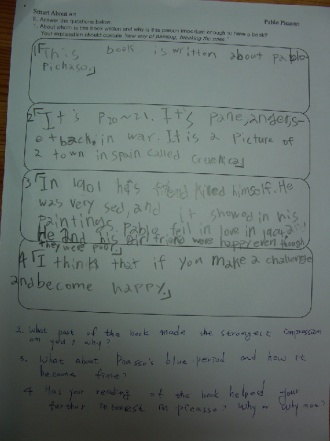 Pablo Picasso
5. Answer the questions below.
1 This book is written about pablo
pichaso
2 It's P20~21. It's pane, anders
etback, in war. It is a picture of
2 town in spain called
3 In 1901 his killed himself. He
was very sed, and it showed in his
paintings. Pablo fell in love in
He and his girl friend were happy even though
they were poor
4 I thinks that if you make a challenge
and become happy
2. What part of the book made the strongest impression
on you? why?
3. What about Picasso's blue period and how it
become
4. Has you reading of the book helped your
further interest in picasso? Why or why not?